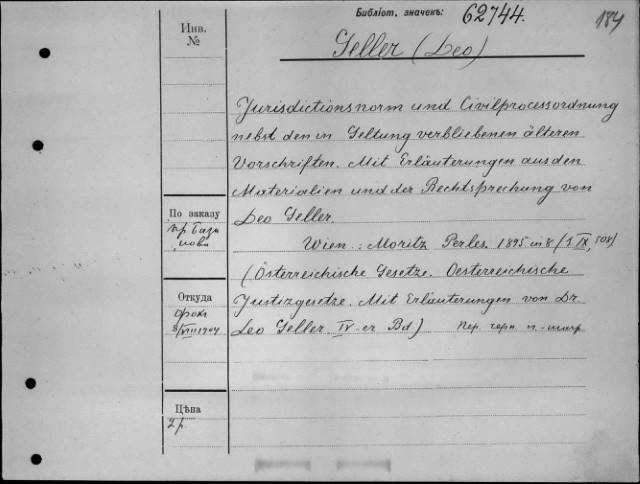 Библіот. значекъ: 62744.
184
Инв.
№
Geller (Leo)
Jurisdictionsnorm und Civilprocessordnung
nebst den in Geltung verbliebenen älteren
Vorschriften. Mit Erläuterungen aus den
Materialien und der Rechtsprechung von
Leo Geller.
Wien: Moritz Perles. 1895. in 8 (1 IX, 508)
(Österreichische Gesetze. Oesterreichische
Justizgesetze. Mit Erläuterungen von Dr.
Leo Geller. IV-er Bd) Пер. черн. к.-
По заказу
пр
Откуда
VIII 1904
Цѣна
2 р.